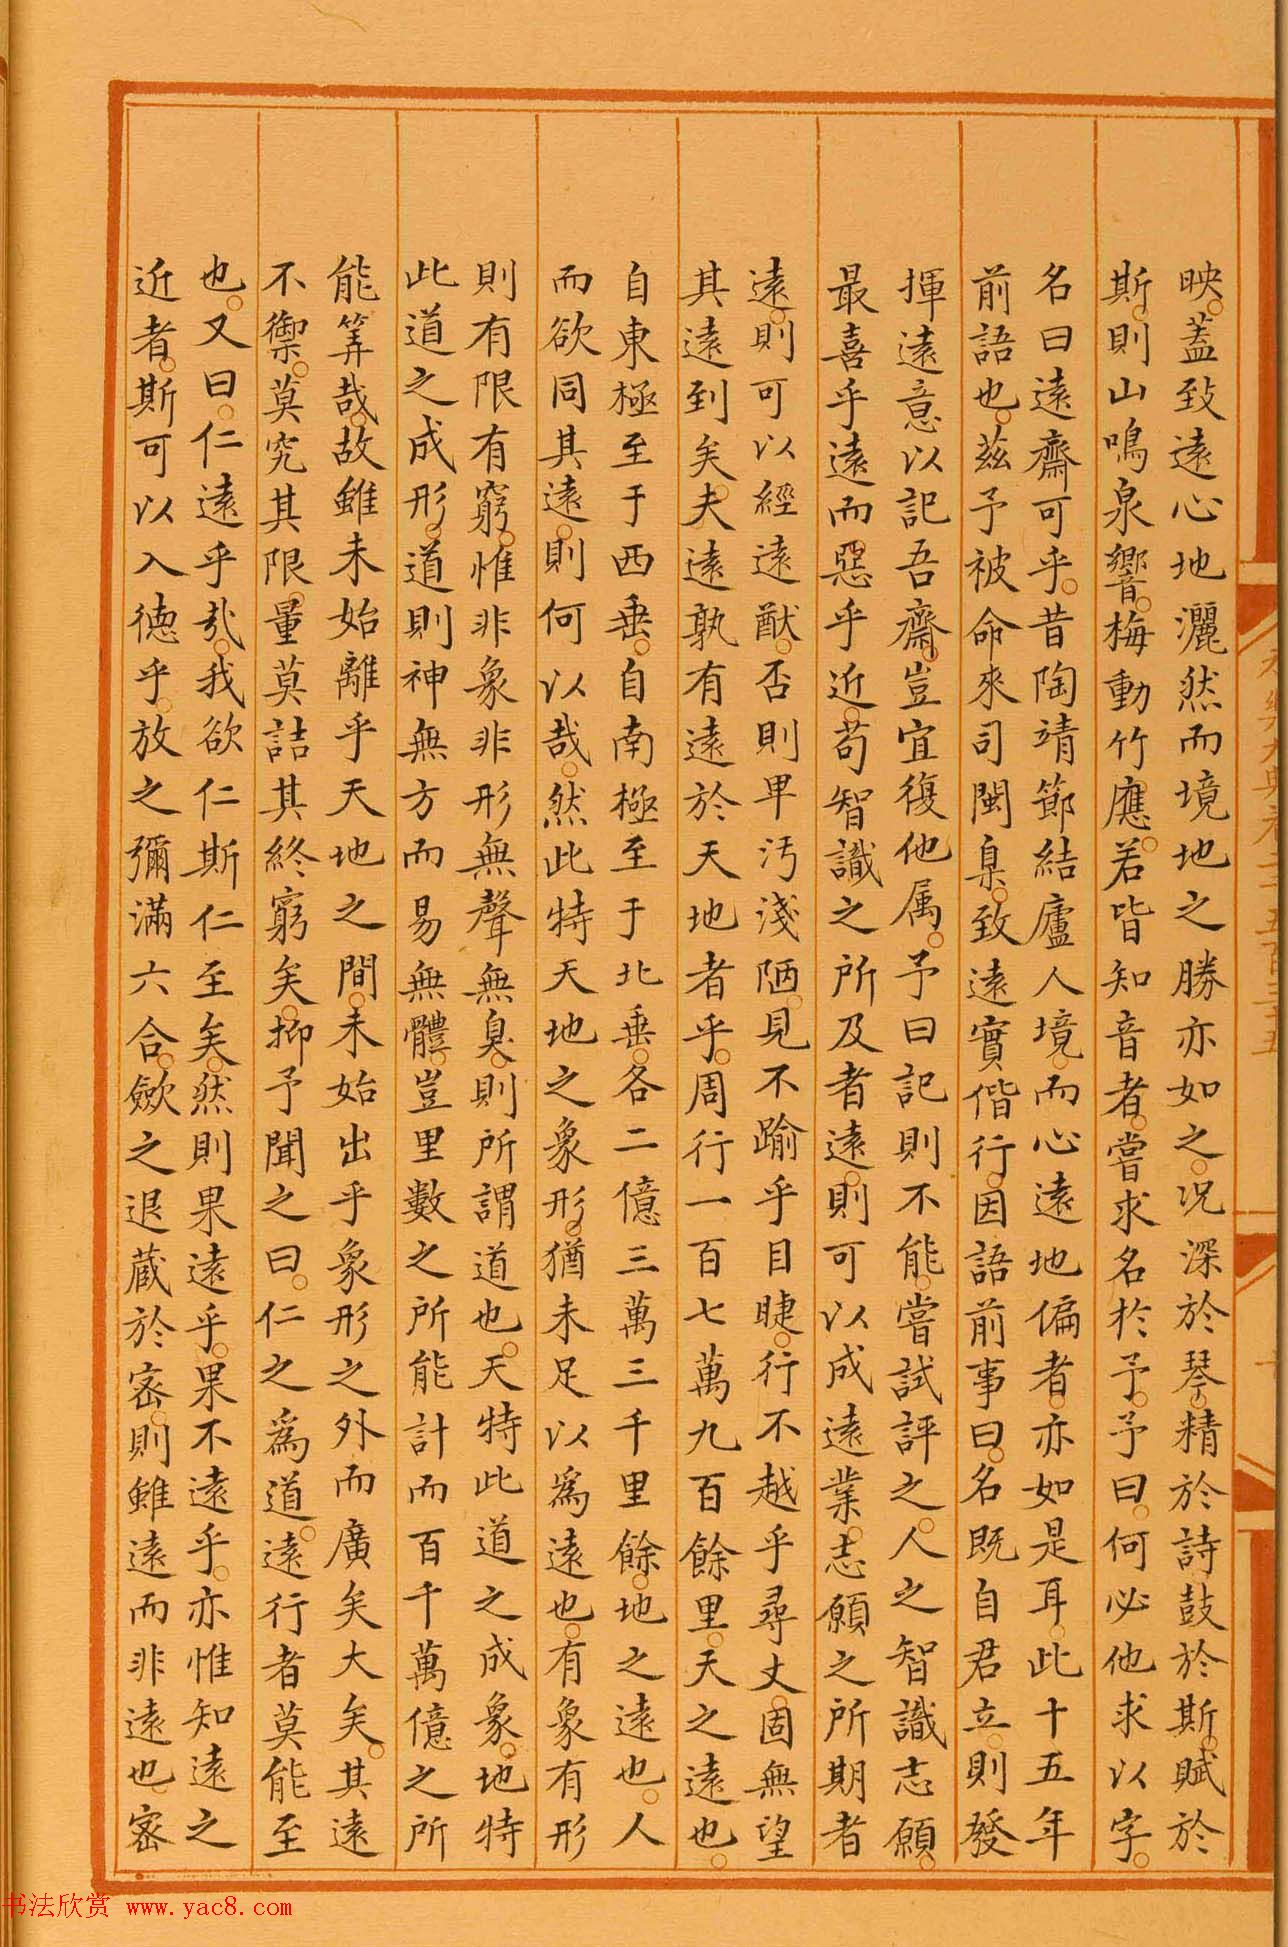 映。蓋致遠心地灑然而境地之勝亦如之。况深於琴。精於詩鼓於斯。賦於
斯。則山鳴泉響。梅動竹應。若皆知音者。嘗求名於予。予曰。何必他求以字。
名曰遠齋可乎。昔陶靖節結廬人境。而心遠地偏者。亦如是耳。此十五年
前語也。茲予被命來司閩臬。致遠實偕行。因語前事曰。名既自君立。則發
揮遠意以記吾齋。豈宜復他属。予曰記則不能。嘗試評之。人之智識志願。
最喜乎遠而惡乎近。苟智識之所及者遠。則可以成遠業。志願之所期者
遠。則可以經遠猷。否則卑汚淺陋。見不踰乎目睫。行不越乎尋丈。固無望
其遠到矣。夫遠孰有遠於天地者乎。周行一百七萬九百餘里。天之遠也。
自東極至于西垂。自南極至于北垂。各二億三萬三千里餘。地之遠也。人
而欲同其遠。則何以哉。然此特天地之象形。猶未足以爲遠也。有象有形
則有限有窮。惟非象非形無聲無臭。則所謂道也。天特此道之成象。地特
此道之成形。道則神無方而易無體。豈里數之所能計而百千萬億之所
能筭哉。故雖未始離乎天地之間。未始出乎象形之外而廣矣大矣。其遠
不禦。莫究其限。量莫詰其終窮矣。抑予聞之曰。仁之爲道。遠。行者莫能至
也。又曰。仁遠乎哉。我欲仁斯仁至矣。然則果遠乎。果不遠乎。亦惟知遠之
近者。斯可以入德乎。放之彌滿六合。歛之退藏於密。則雖遠而非遠也。密
書法欣赏 www.yac8.com